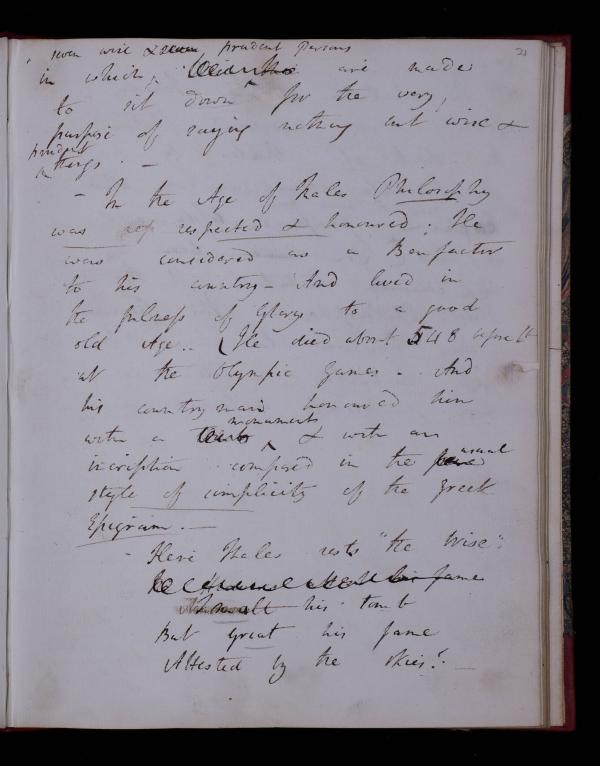 21
seven wise & prudent Persons
in which are made
to sit down for the very
purpose of saying nothing but wise &
prudent
things. —
— In the Age of Thales Philosophy
was respected & honoured; He
was considered as a Benefactor
to his country — And lived in
the fulness of Glory to a good
old Age.. (He died about 548
at the Olympic games. And
his countrymen honoured him
monument
with a & with an
usual
inscription composed in the
style of simplicity of the Greek
Epigram. —
Here Thales rests "the Wise".
fame
Small his tomb
But Great his fame
Attested by the skies".